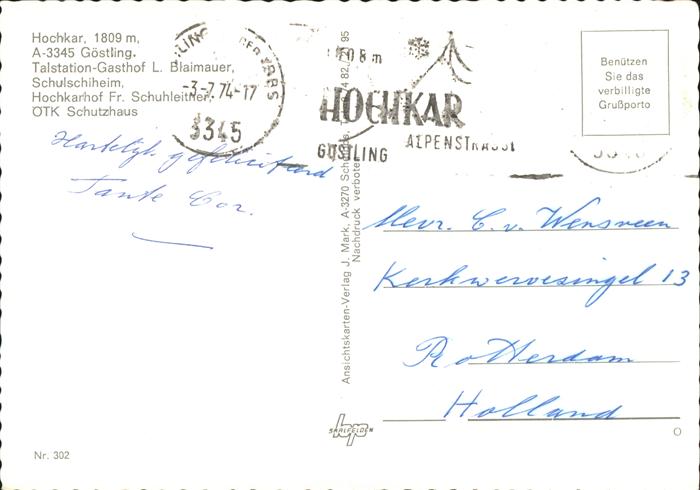 Hochkar, 1809 m,
A-3345 Göstling.
Talstation-Gasthof L. Blaimauer,
Schulschiheim,
Hochkarhof Fr. Schuhleitner,
ÖTK Schutzhaus
-3.-7.74-17
3345
HOCHKAR
GÖSTLING
ALPENSTRASSE
Benützen
Sie das
verbilligte
Grußporto
Hartelijk gefeliciteerd
Tante Cor.
Ansichtskarten-Verlag J. Mark, A-3270
Nachdruck verboten
Mevr. C. v. Wensveen
Kerkwervesingel 13
Rotterdam
Holland
SAALFELDEN
Nr. 302